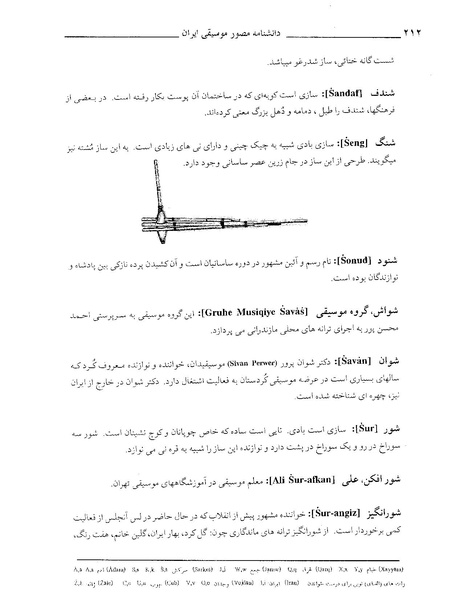 ۲۱۲ دانشنامه مصور موسیقی ایران
شست گانه ختائی، ساز شدرغو میباشد.
شندف [Šandaf]: سازی است کوبه‌ای که در ساختمان آن پوست بکار رفته است. در بعضی از
فرهنگها، شندف را طبل ، دمامه و دُهل بزرگ معنی کرده‌اند.
شنگ [Šeng]: سازی بادی شبیه به چیک چینی و دارای نی های زیادی است. به این ساز مُشته نیز
میگویند. طرحی از این ساز در جام زرین عصر ساسانی وجود دارد.
شنود [Šonud]: نام رسم و آئین مشهور در دوره ساسانیان است و آن کشیدن پرده نازکی بین پادشاه و
نوازندگان بوده است.
شواش، گروه موسیقی [Gruhe Musiqiye Šavâš]: این گروه موسیقی به سرپرستی احمد
محسن پور به اجرای ترانه های محلی مازندرانی می پردازد.
شوان [Šavân]: دکتر شوان پرور (Sivan Perwer) موسیقیدان، خواننده و نوازنده معروف کُرد که
سالهای بسیاری است در عرصه موسیقی کُردستان به فعالیت اشتغال دارد. دکتر شوان در خارج از ایران
نیز، چهره ای شناخته شده است.
شور [Šur]: سازی است بادی. نایی است ساده که خاص چوپانان و کوچ نشینان است. شور سه
سوراخ در رو و یک سوراخ در پشت دارد و نوازنده این ساز را شبیه به قره نی می نوازد.
شور افکن، علی [Ali Šur-afkan]: معلم موسیقی در آموزشگاههای موسیقی تهران.
شورانگیز [Šur-angiz]: خواننده مشهور پیش از انقلاب که در حال حاضر در لس آنجلس از فعالیت
کمی برخوردار است. از شورانگیز ترانه های ماندگاری چون: گل کرد، بهار ایران، گلین خانم، هفت رنگ،